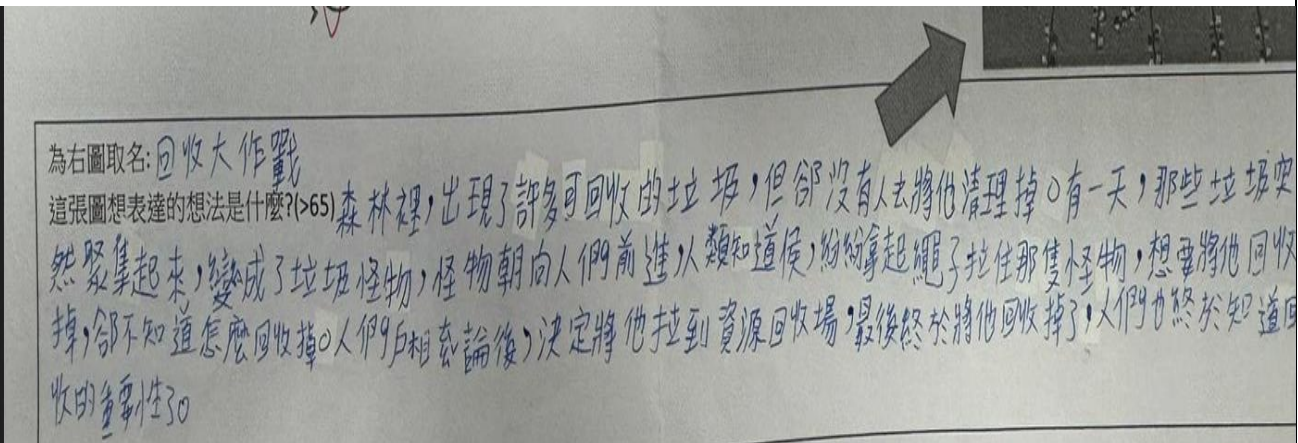 為右圖取名:回收大作戰
這張圖想表達的想法是什麼?(>65)森林裡，出現了許多可回收的垃圾，但卻沒有人去將他清理掉。有一天，那些垃圾突
然聚集起來，變成了垃圾怪物，怪物朝向人們前進，人類知道後，紛紛拿起繩子拉住那隻怪物，想要將他回收
掉，卻不知道怎麼回收掉。人們互相討論後，決定將他拉到資源回收場，最後終於將他回收掉了，人們也終於知道回
收的重要性了。